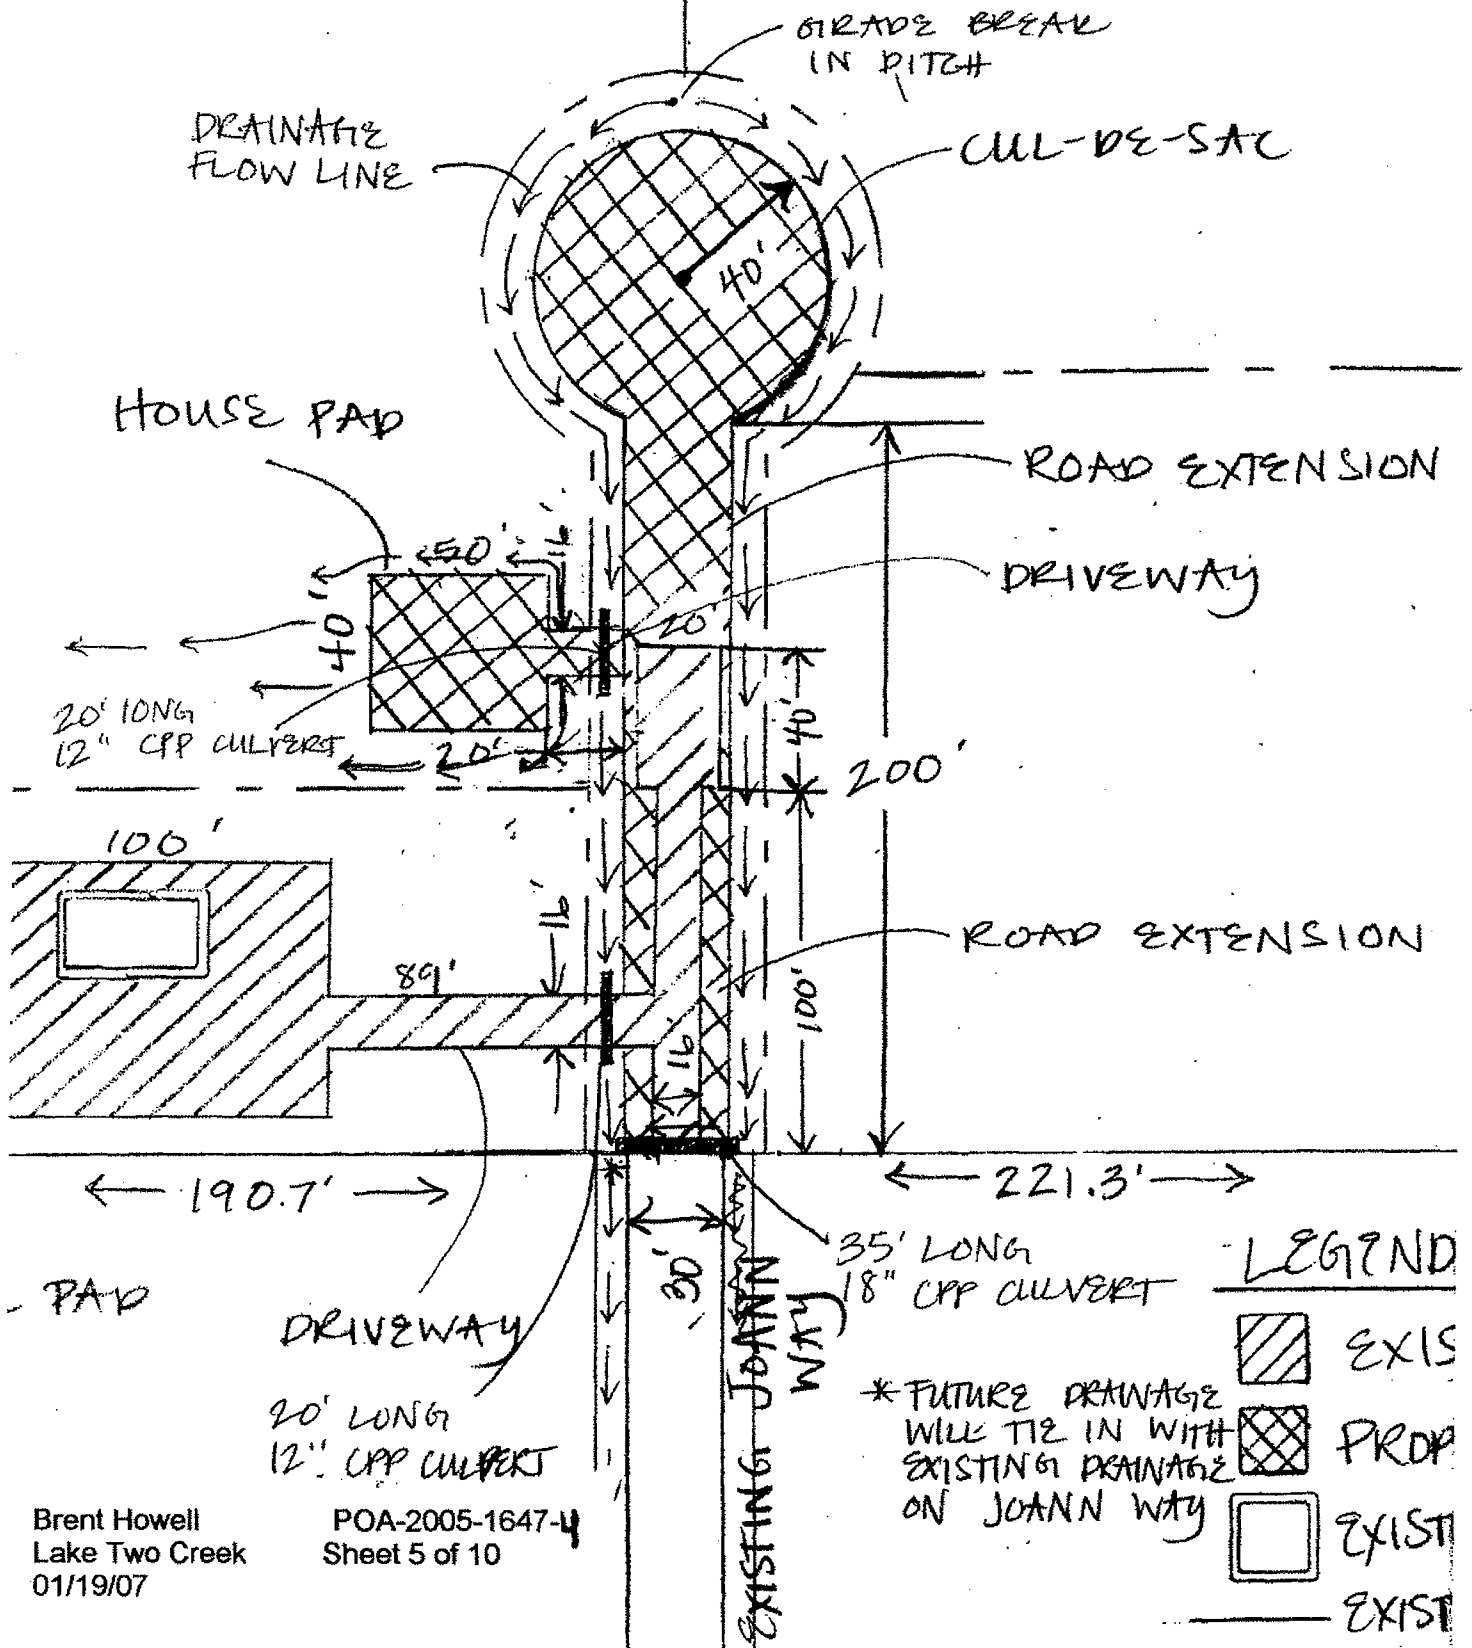 GRADE BREAK
IN DITCH
DRAINAGE
FLOW LINE
CUL-DE-SAC
40'
HOUSE PAD
ROAD EXTENSION
50'
16'
DRIVEWAY
40'
20'
20' LONG
12" CPP CULVERT
20'
40'
200'
100'
16'
ROAD EXTENSION
89'
100'
16'
190.7'
221.3'
30'
35' LONG
18" CPP CULVERT
LEGEND
PAD
DRIVEWAY
EXISTING JOANN
WAY
EXIS
20' LONG
12" CPP CULVERT
* FUTURE DRAINAGE
WILL TIE IN WITH
EXISTING DRAINAGE
ON JOANN WAY
PROP
EXISTI
EXIST
Brent Howell
Lake Two Creek
01/19/07
POA-2005-1647-4
Sheet 5 of 10